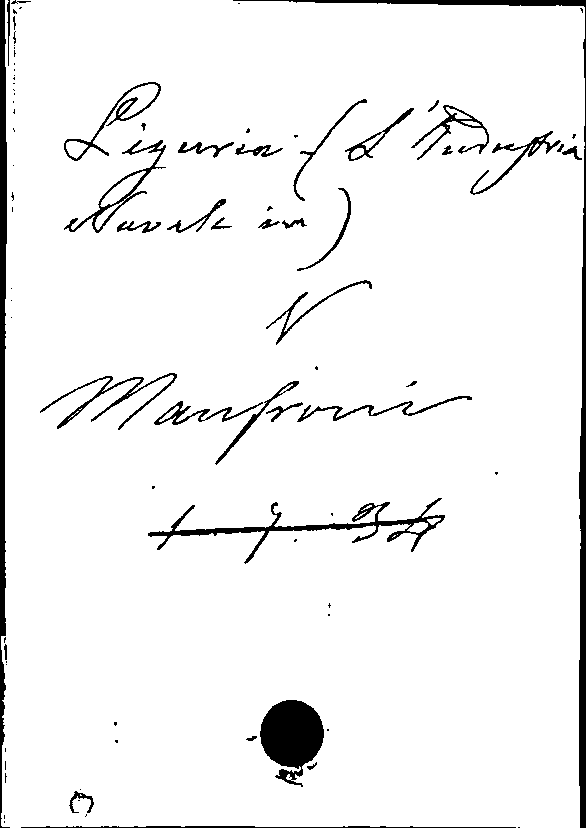 Liguria - (L'Industria
Navale in)
V
Manfroni
1. 7. 34